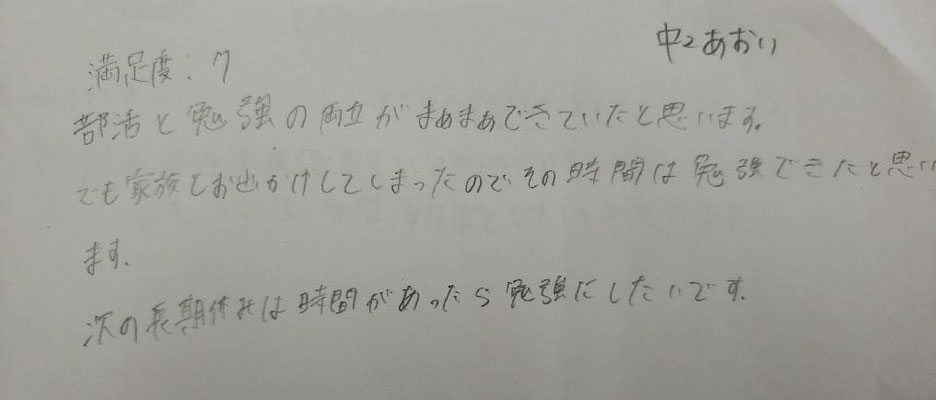 中2 あおい
満足度：7
部活と勉強の両立がまぁまぁできていたと思います。
でも家族とお出かけしてしまったのでその時間は勉強できたと思い
ます。
次の長期休みは時間があったら勉強にしたいです。